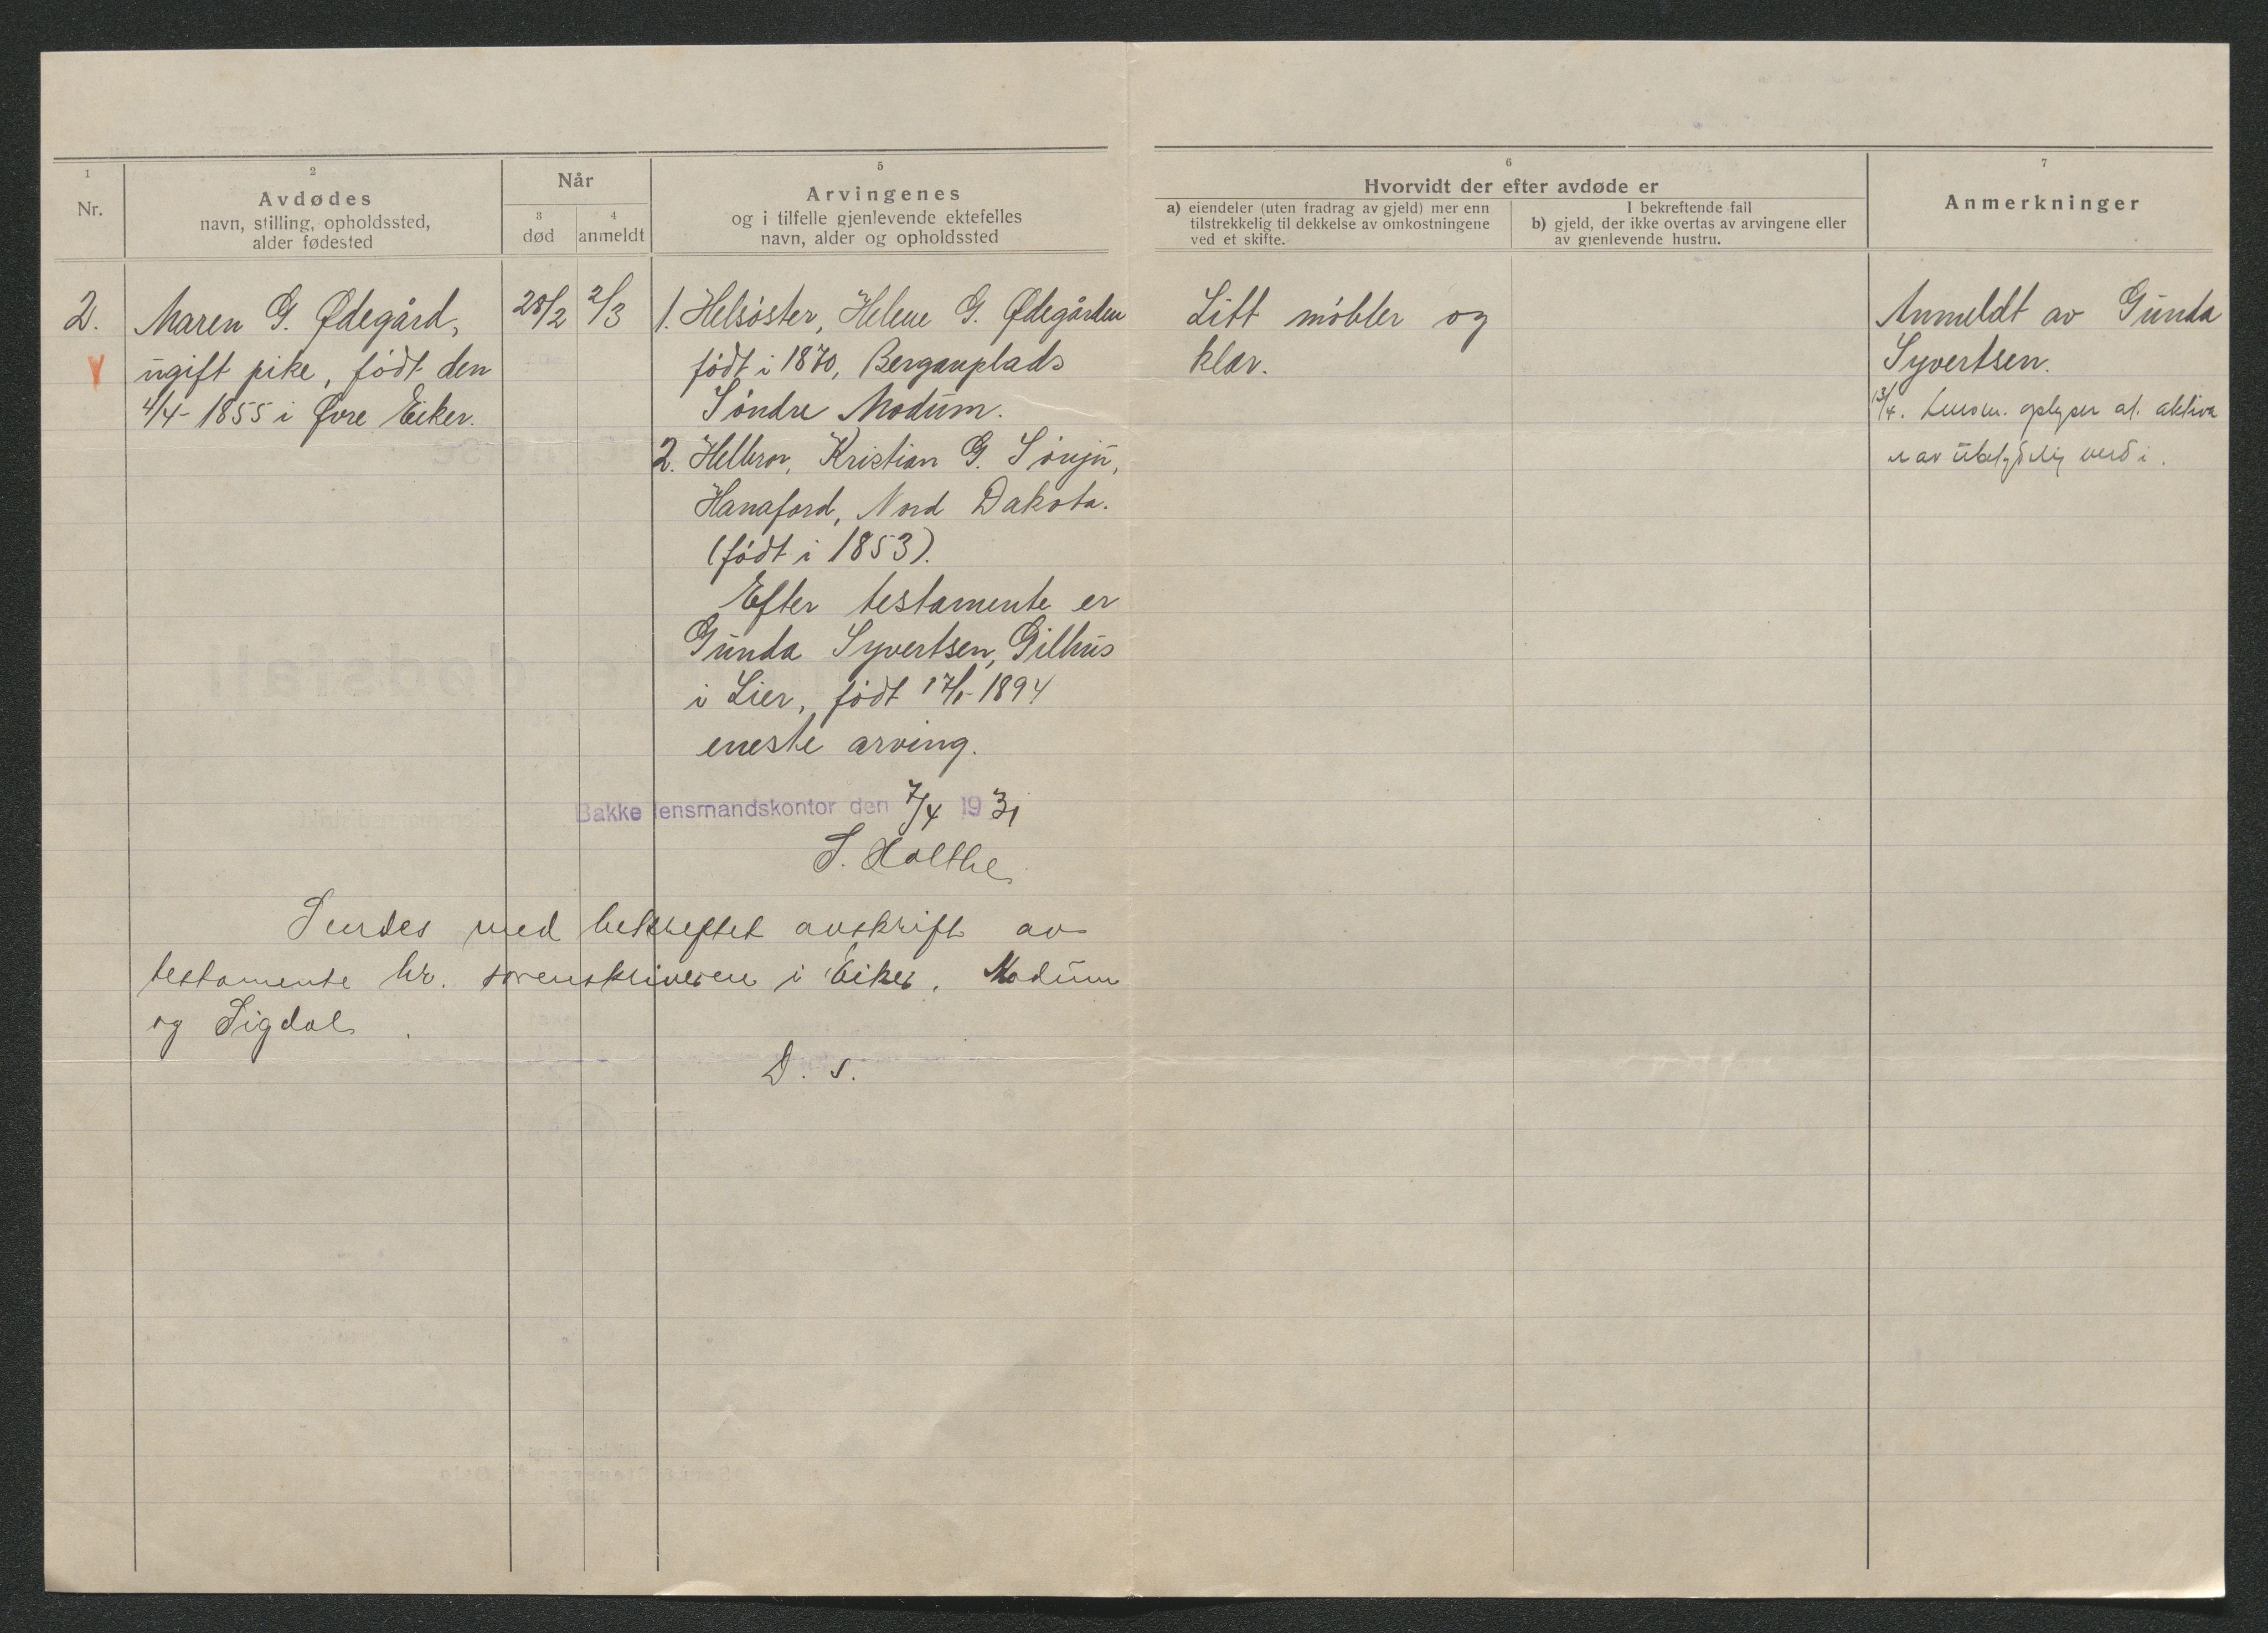 1
Nr.
2
Avdødes
navn, stilling, opholdssted,
alder fødested
Når
3
død
4
anmeldt
5
Arvingenes
og i tilfelle gjenlevende ektefelles
navn, alder og opholdssted
6
Hvorvidt der efter avdøde er
a) eiendeler (uten fradrag av gjeld) mer enn
tilstrekkelig til dekkelse av omkostningene
ved et skifte.
I bekreftende fall
b) gjeld, der ikke overtas av arvingene eller
av gjenlevende hustru.
7
Anmerkninger
2.
Maren G. Ødegård,
ugift pike, født den
4/4-1855 i Øvre Eiker.
28/2
2/3
1. Helsøster, Helene G. Ødegården
født i 1870, Berganplads
Søndre Modum.
2. Helbror, Kristian G.
Hanaford, Nord Dakota.
(født i 1853).
Efter testamente er
Gunda Syvertsen, Gilhus
i Lier, født 17/1-1894
eneste arving.
Litt møbler og
klær.
Anmeldt av Gunda
Syvertsen.
13/4. Lensm. oplyser at aktiva
er av ubetydelig verdi.
Bakke lensmandskontor den 7/4 1931
S. Holthe
Sendes med bekreftet avskrift av
testamente hr. sorenskriveren i Eiker, Modum
og Sigdal.
D. s.